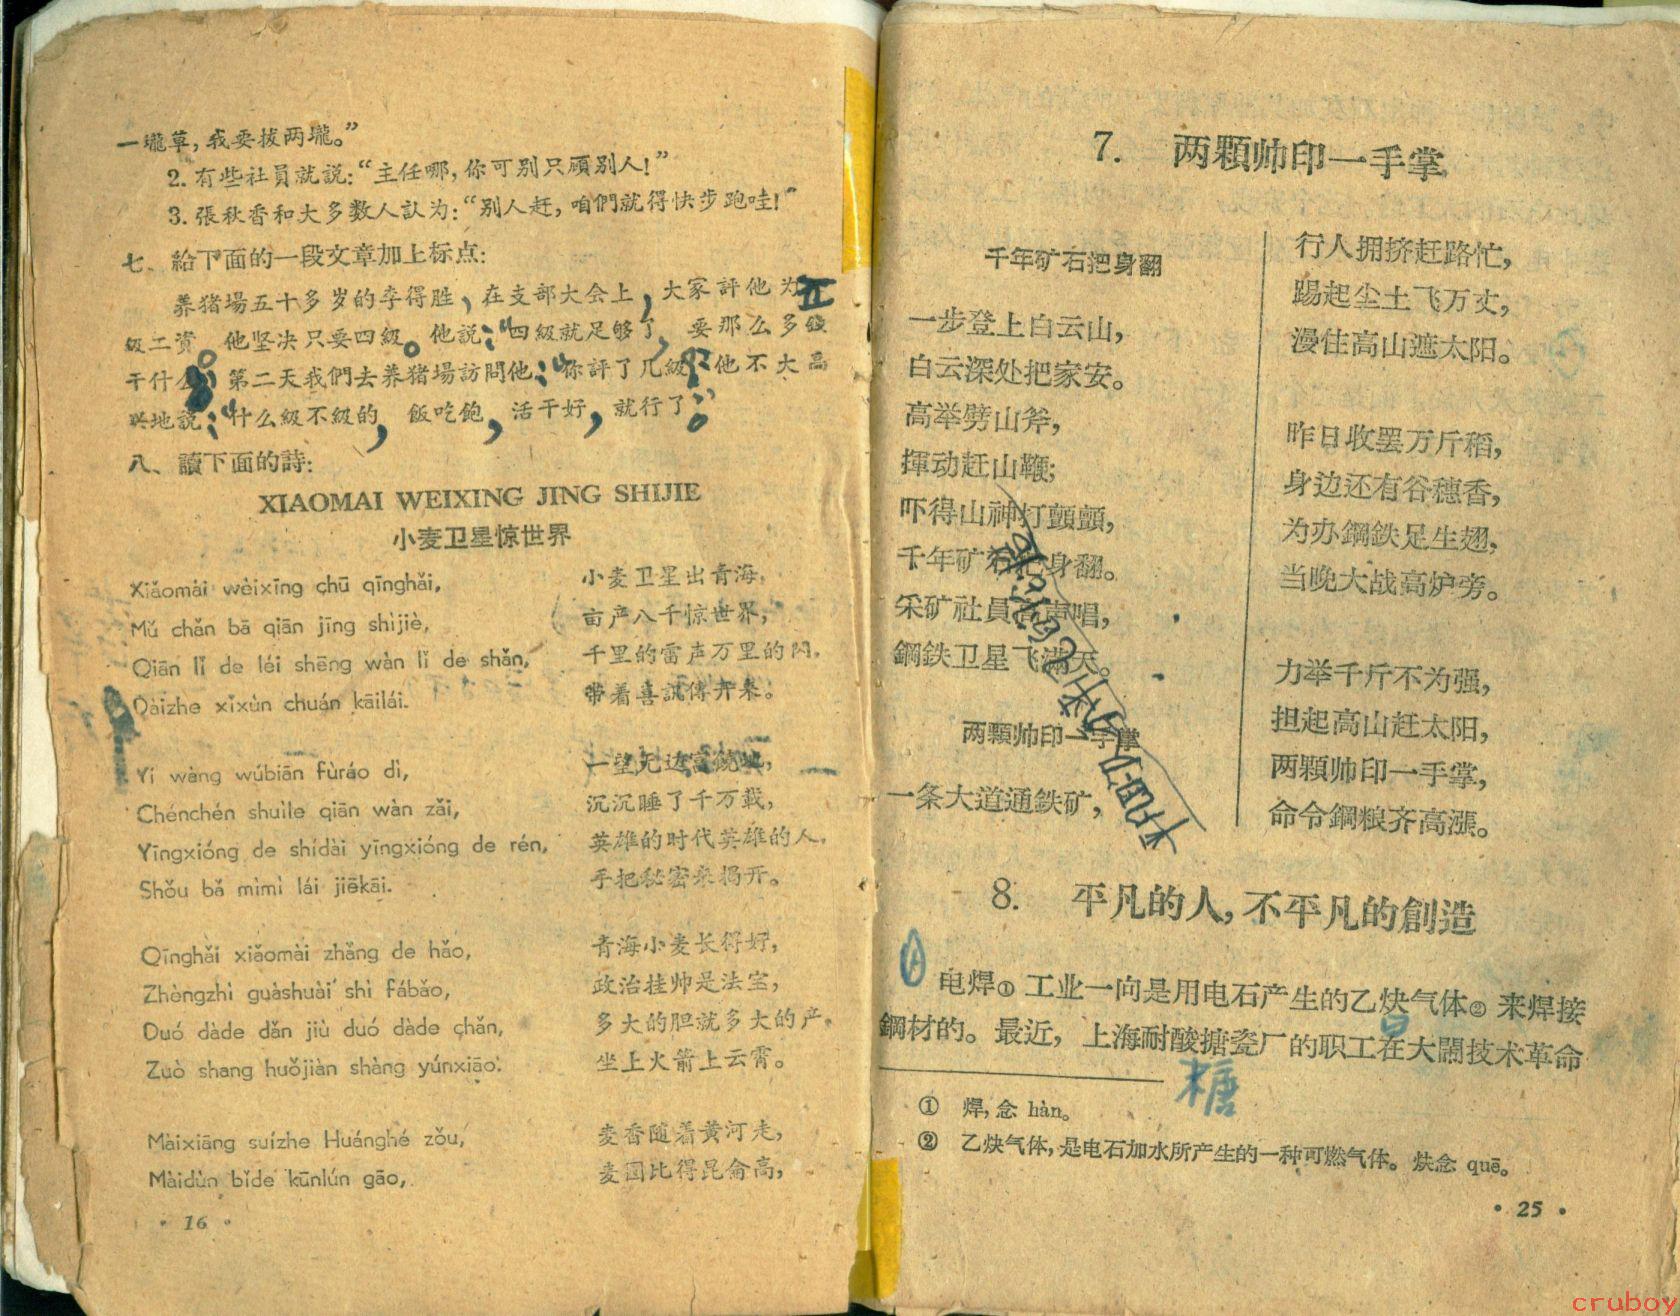 一壠草，我要拔两壠。”
2. 有些社員就說：“主任哪，你可别只顧别人！”
3. 張秋香和大多数人認为：“别人赶，咱們就得快步跑哇！”
七、給下面的一段文章加上标点：
养猪場五十多岁的李得胜、在支部大会上，大家評他为五
級工資。他坚决只要四級。他説：“四級就足够了，要那么多錢
干什么 第二天我們去养猪場訪問他：“你評了几級？他不大高
兴地説：“什么級不級的，飯吃飽，活干好，就行了。
八、讀下面的詩：
XIAOMAI WEIXING JING SHIJIE
小麦卫星惊世界
Xiǎomài wèixīng chū qīnghǎi,
Mǔ chǎn bā qiān jīng shìjiè,
Qiān lǐ de léi shēng wàn lǐ de shǎn,
Dàizhe xǐxùn chuán kāilái.
Yí wàng wúbiān fùráo dì,
Chénchén shuìle qiān wàn zǎi,
Yīngxióng de shídài yīngxióng de rén,
Shǒu bǎ mìmì lái jiēkāi.
Qīnghǎi xiǎomài zhǎng de hǎo,
Zhèngzhì guàshuài shì fábǎo,
Duó dàde dǎn jiù duó dàde chǎn,
Zuò shang huǒjiàn shàng yúnxiāo.
Màixiāng suízhe Huánghé zǒu,
Màidùn bǐde kūnlún gāo,
小麦卫星出青海，
亩产八千惊世界，
千里的雷声万里的闪，
带着喜訊傳开来。
一望无边富饒地，
沉沉睡了千万載，
英雄的时代英雄的人，
手把秘密来揭开。
青海小麦长得好，
政治挂帅是法宝，
多大的胆就多大的产，
坐上火箭上云霄。
麦香随着黄河走，
麦囤比得昆侖高，
• 16 •
7. 两顆帅印一手掌
千年矿石把身翻
一步登上白云山，
白云深处把家安。
高举劈山斧，
揮动赶山鞭；
吓得山神打顫顫，
千年矿石把身翻。
采矿社員高声唱，
鋼鉄卫星飞满天。
两顆帅印一手掌
一条大道通鉄矿，
行人拥挤赶路忙，
踢起尘土飞万丈，
漫住高山遮太阳。
昨日收罢万斤稻，
身边还有谷穗香，
为办鋼鉄足生翅，
当晚大战高炉旁。
力举千斤不为强，
担起高山赶太阳，
两顆帅印一手掌，
命令鋼粮齐高漲。
8. 平凡的人，不平凡的創造
电焊① 工业一向是用电石产生的乙炔气体② 来焊接
鋼材的。最近，上海耐酸搪瓷厂的职工在大鬧技术革命
糖
① 焊，念 hàn。
② 乙炔气体，是电石加水所产生的一种可燃气体。炔念 quē。
• 25 •
cruboy